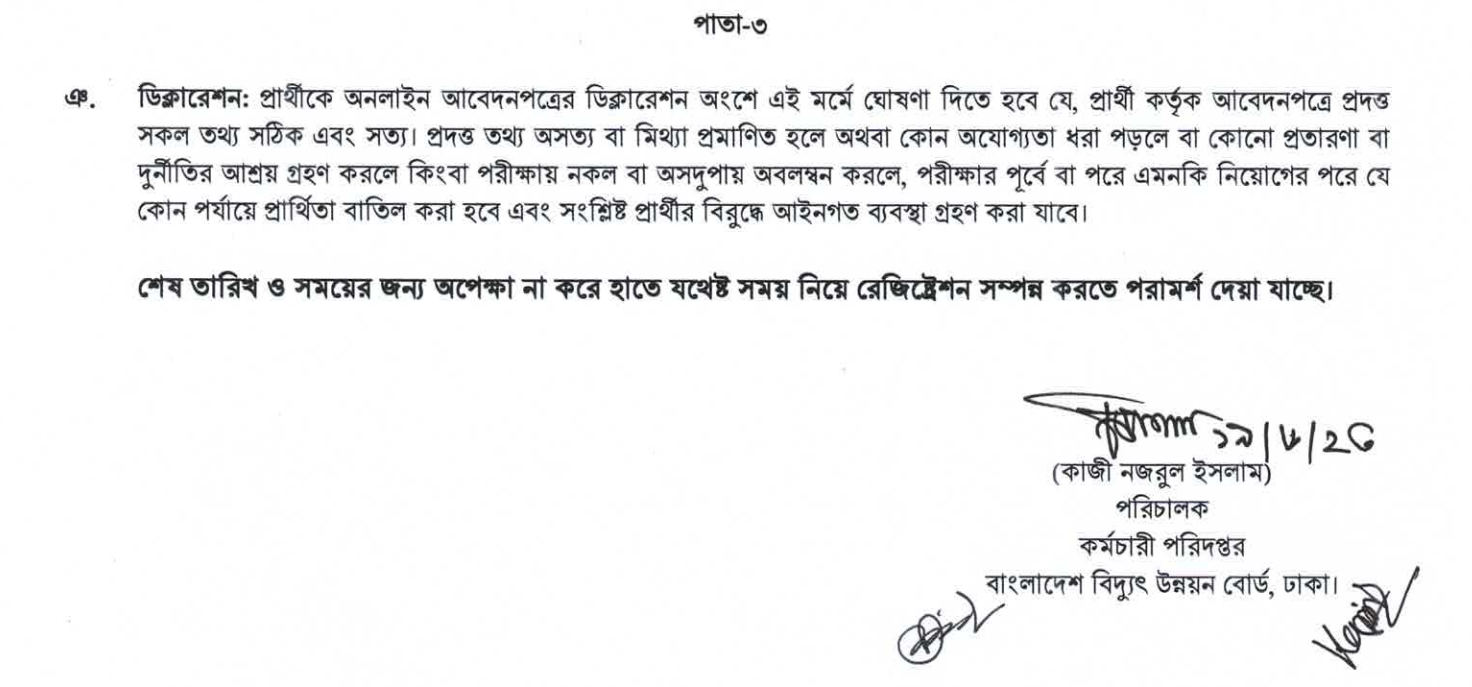 পাতা-৩
ঞ. ডিক্লারেশন: প্রার্থীকে অনলাইন আবেদনপত্রের ডিক্লারেশন অংশে এই মর্মে ঘোষণা দিতে হবে যে, প্রার্থী কর্তৃক আবেদনপত্রে প্রদত্ত
সকল তথ্য সঠিক এবং সত্য। প্রদত্ত তথ্য অসত্য বা মিথ্যা প্রমাণিত হলে অথবা কোন অযোগ্যতা ধরা পড়লে বা কোনো প্রতারণা বা
দুর্নীতির আশ্রয় গ্রহণ করলে কিংবা পরীক্ষায় নকল বা অসদুপায় অবলম্বন করলে, পরীক্ষার পূর্বে বা পরে এমনকি নিয়োগের পরে যে
কোন পর্যায়ে প্রার্থিতা বাতিল করা হবে এবং সংশ্লিষ্ট প্রার্থীর বিরুদ্ধে আইনগত ব্যবস্থা গ্রহণ করা যাবে।
শেষ তারিখ ও সময়ের জন্য অপেক্ষা না করে হাতে যথেষ্ট সময় নিয়ে রেজিষ্ট্রেশন সম্পন্ন করতে পরামর্শ দেয়া যাচ্ছে।
(কাজী নজরুল ইসলাম)
পরিচালক
কর্মচারী পরিদপ্তর
বাংলাদেশ বিদ্যুৎ উন্নয়ন বোর্ড, ঢাকা।